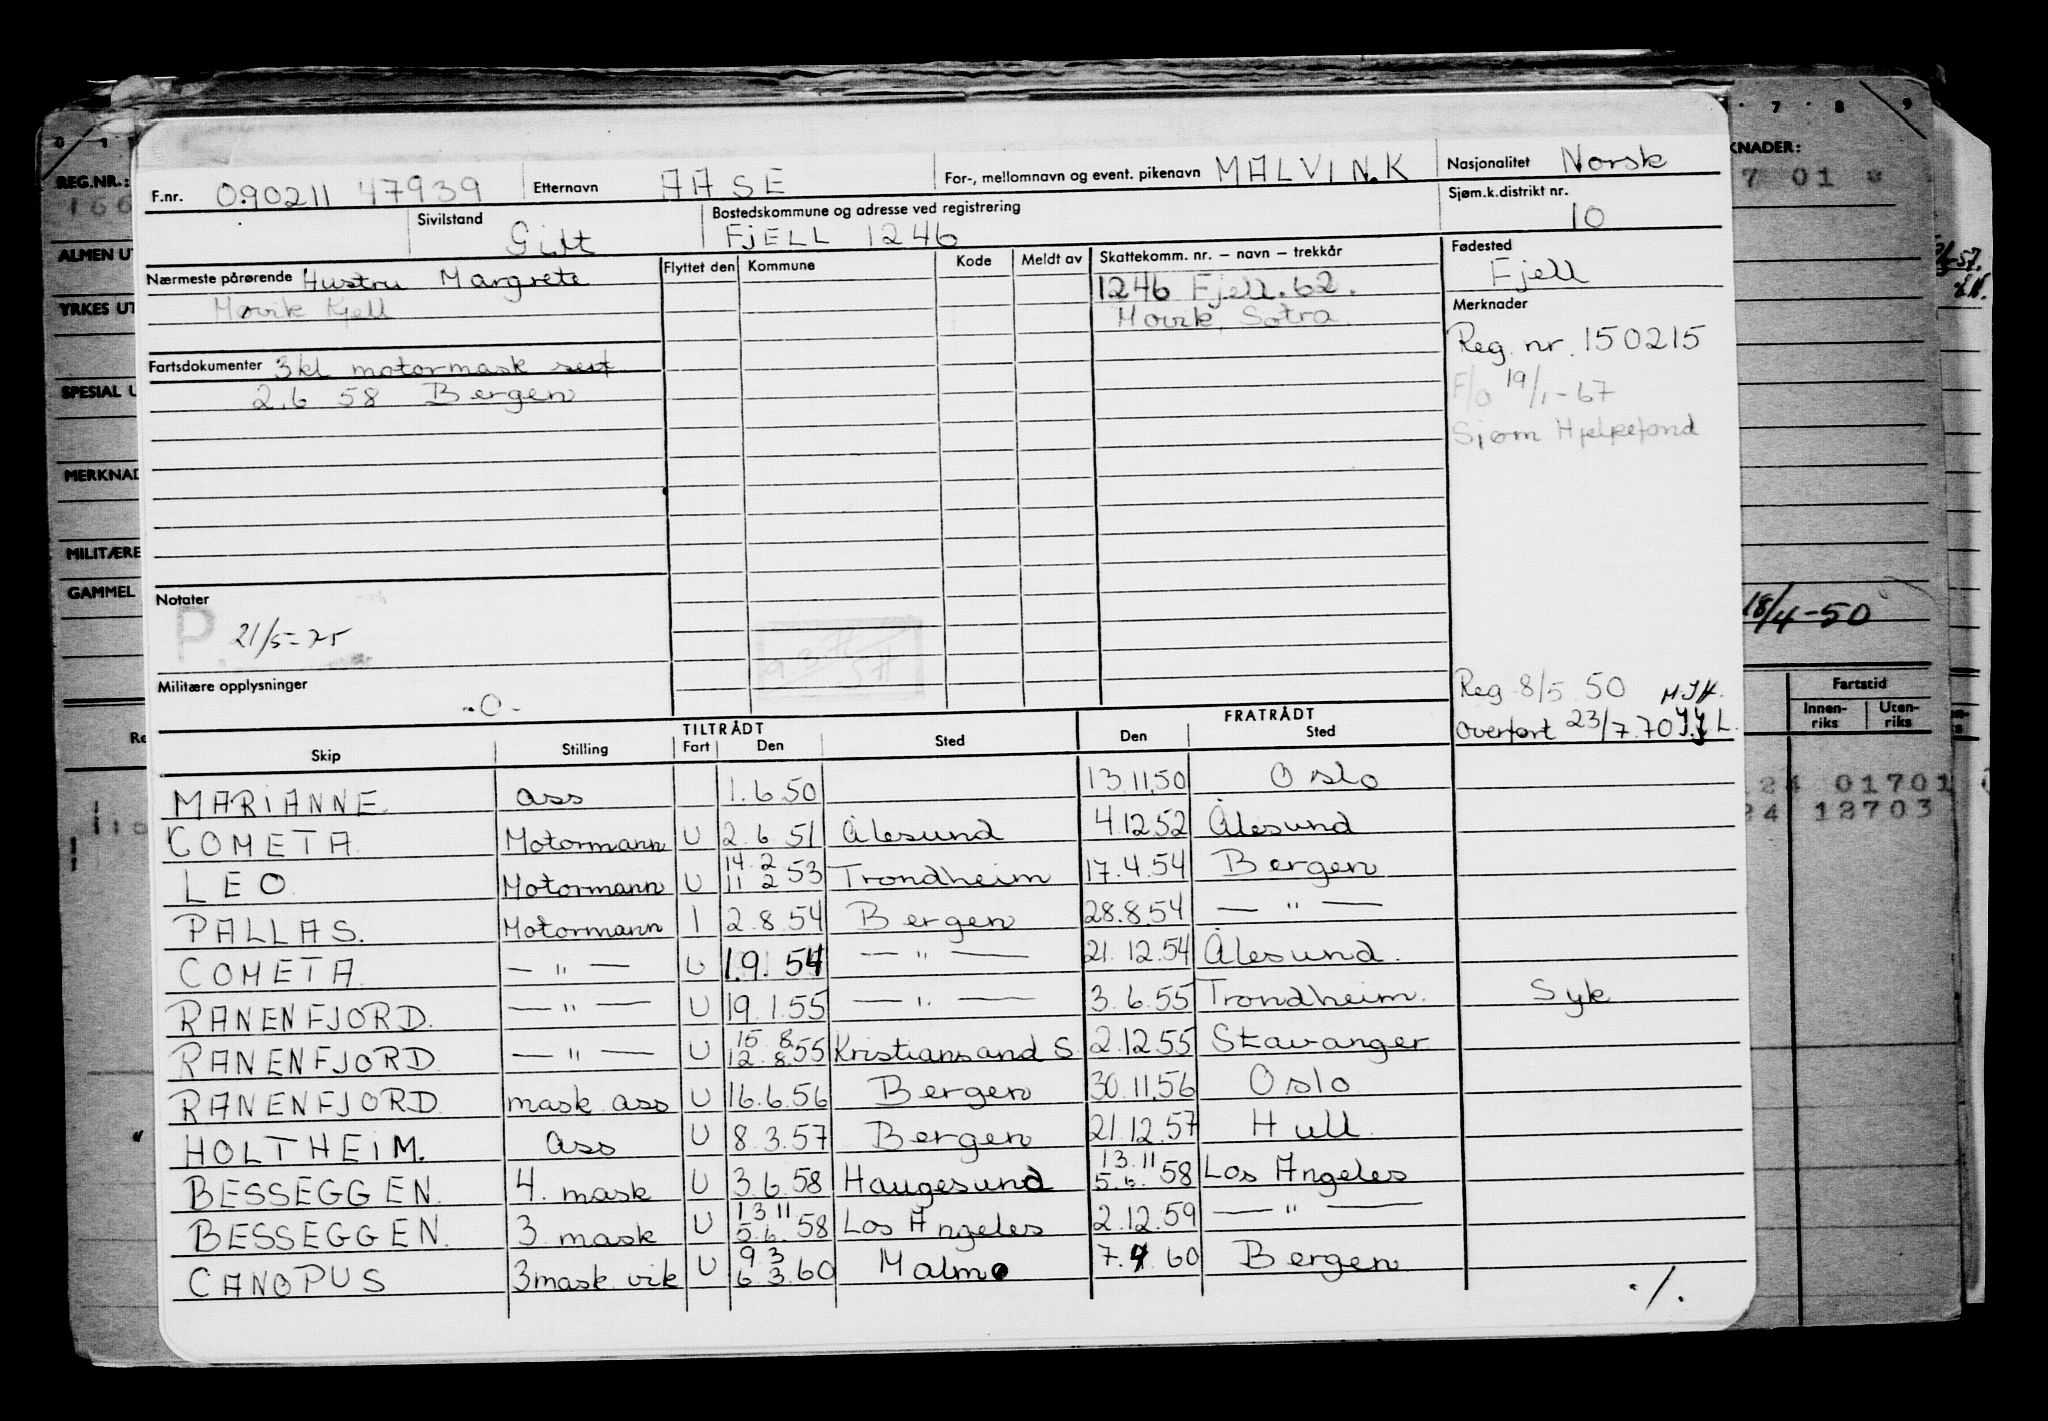 F.nr. 090211 47939 Etternavn AASE For-, mellomnavn og event. pikenavn MALVIN.K Nasjonalitet Norsk
Sivilstand Gift Bostedskommune og adresse ved registrering FJELL 1246 Sjøm.k.distrikt nr. 10
Nærmeste pårørende Hustru Margrete Flyttet den Kommune Kode Meldt av Skattekomm. nr. – navn – trekkår Fødested
Movik Fjell 1246 Fjell. 62. Fjell
Movik, Sotra
Merknader
Fartsdokumenter 3kl motormask sert Reg. nr. 150215
2.6 58 Bergen F/o 19/1-67
Sjøm Hjelpefond
Notater
P. 21/5-75
Militære opplysninger Reg 8/5 50
-0- Overført 23/7.70
TILTRÅDT FRATRÅDT
Skip Stilling Fart Den Sted Den Sted
MARIANNE ass 1.6.50 13.11.50 Oslo
COMETA Motormann U 2.6.51 Ålesund 4.12.52 Ålesund
LEO Motormann U 14.2 11 2 53 Trondheim 17.4.54 Bergen
PALLAS. Motormann I 2.8.54 Bergen 28.8.54 — " —
COMETA — " — U 1.9.54 — " — 21.12.54 Ålesund.
RANENFJORD. — " — U 19.1.55 — " — 3.6.55 Trondheim. Syk
RANENFJORD — " — U 15 8. 12.8.55 Kristiansand S. 2.12.55 Stavanger
RANENFJORD mask ass U 16.6.56 Bergen 30.11.56 Oslo
HOLTHEIM. ass U 8.3.57 Bergen 21.12.57 Hull.
BESSEGGEN. 4. mask U 3.6.58 Haugesund 13.11 5.6.58 Los Angeles
BESSEGGEN. 3 mask U 13 11 5.6.58 Los Angeles 2.12.59 — " —
CANOPUS 3 mask vik U 9 3 6 3.60 Malmø 7.4.60 Bergen
./.
0 1
REG.NR.:
166
ALMEN UT
YRKES UT
SPESIAL U
MERKNAD
MILITÆRE
GAMMEL
7 8 9
KNADER:
7 01
18/4-50
Fartstid
Innen-riks Uten-riks
24 01701
24 12703